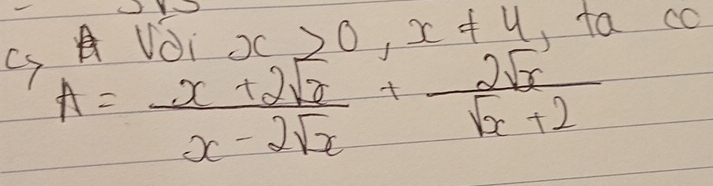 c> A Với x > 0, x ≠ 4, ta co
A = \frac{x + 2\sqrt{x}}{x - 2\sqrt{x}} + \frac{2\sqrt{x}}{\sqrt{x} + 2}